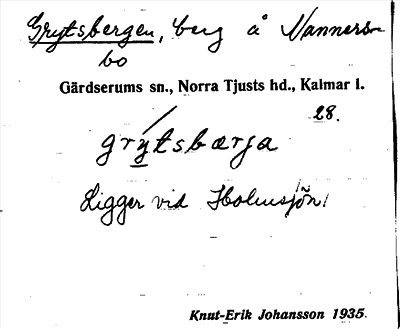 Grytsbergen, berg å Nanners-
bo
Gärdserums sn., Norra Tjusts hd., Kalmar l.
28.
grytsbærja
Ligger vid Holmsjön
Knut-Erik Johansson 1935.